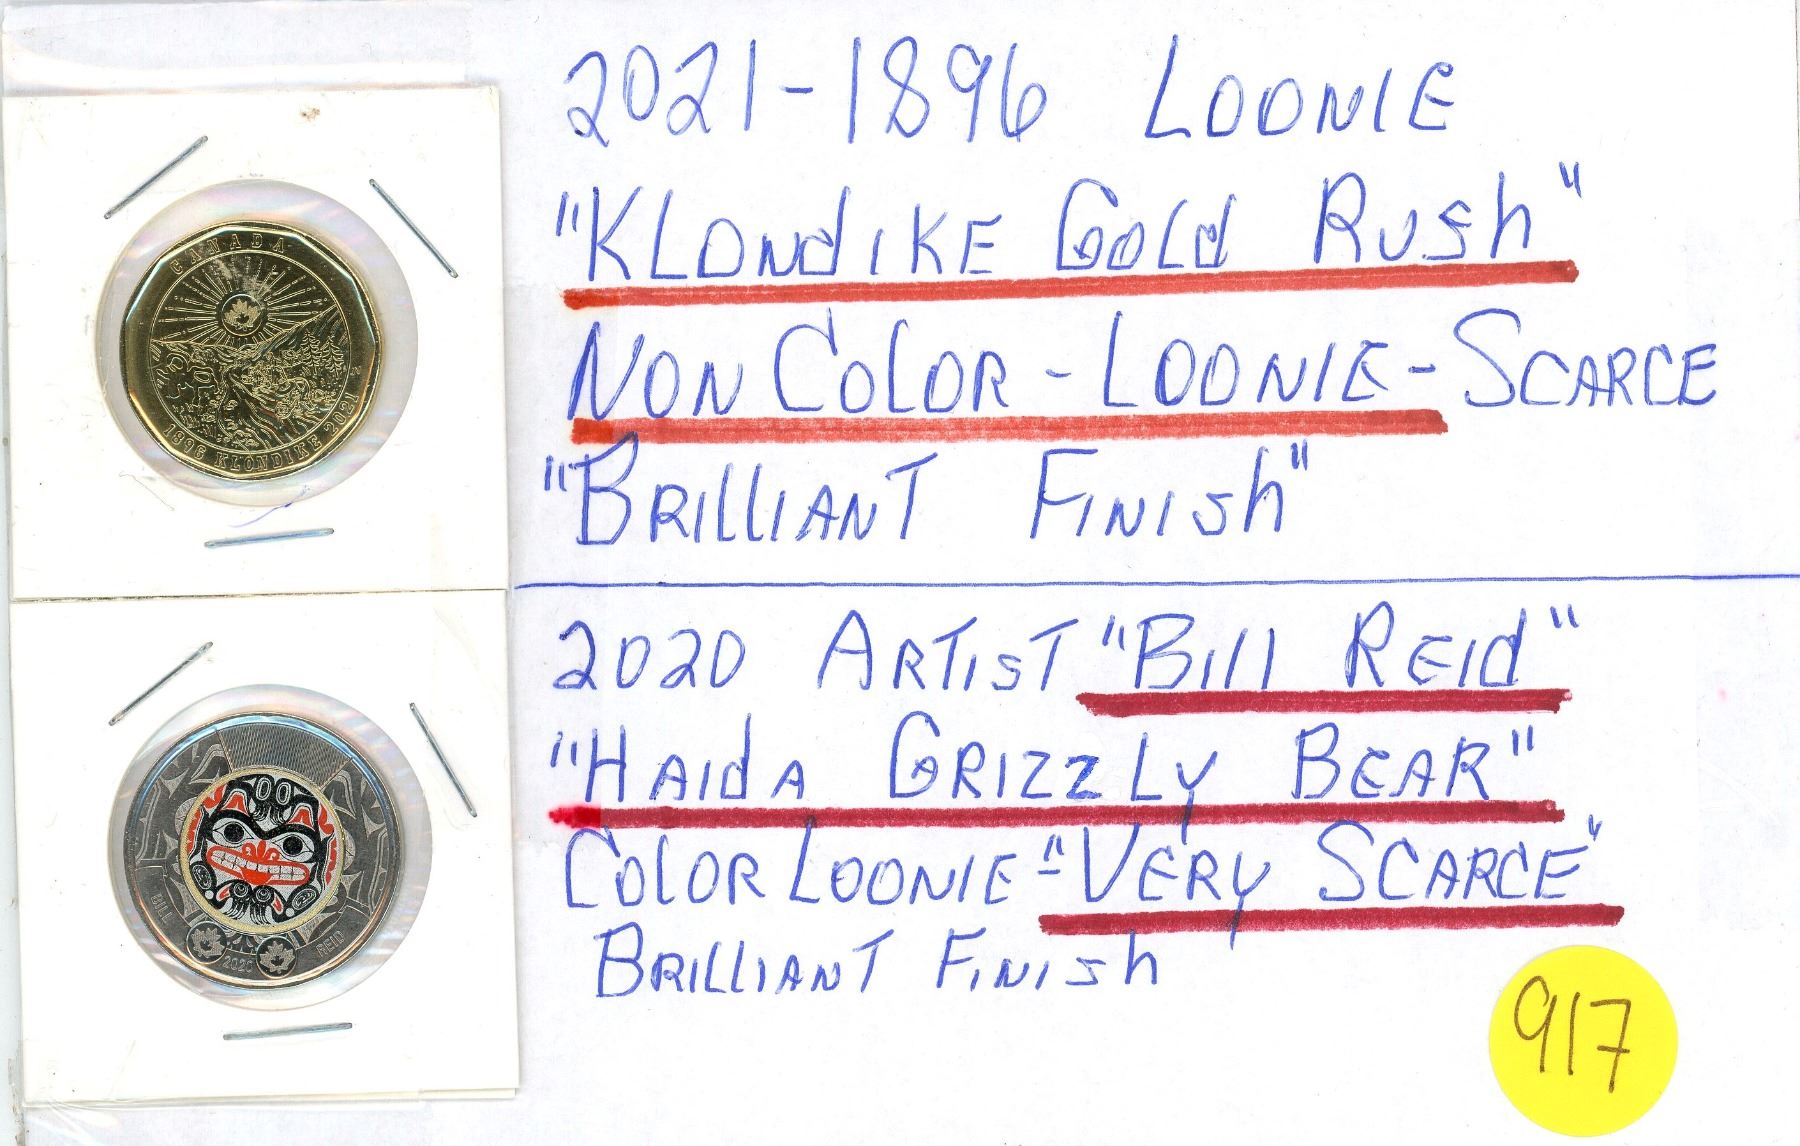 2021-1896 LOONIE
"KLONdIKE GOLd RUSh"
NON COLOR - LOONIE - SCARCE
"BRILLIANT FINISh"
2020 ARTIST "BIll REId"
"HAIdA GRIZZLy BEAR"
COLOR LOONIE - "VERy SCARCE"
BRILLIANT FINISh
917
CANADA
1896 KLONDIKE 2021
BILL REID
2020